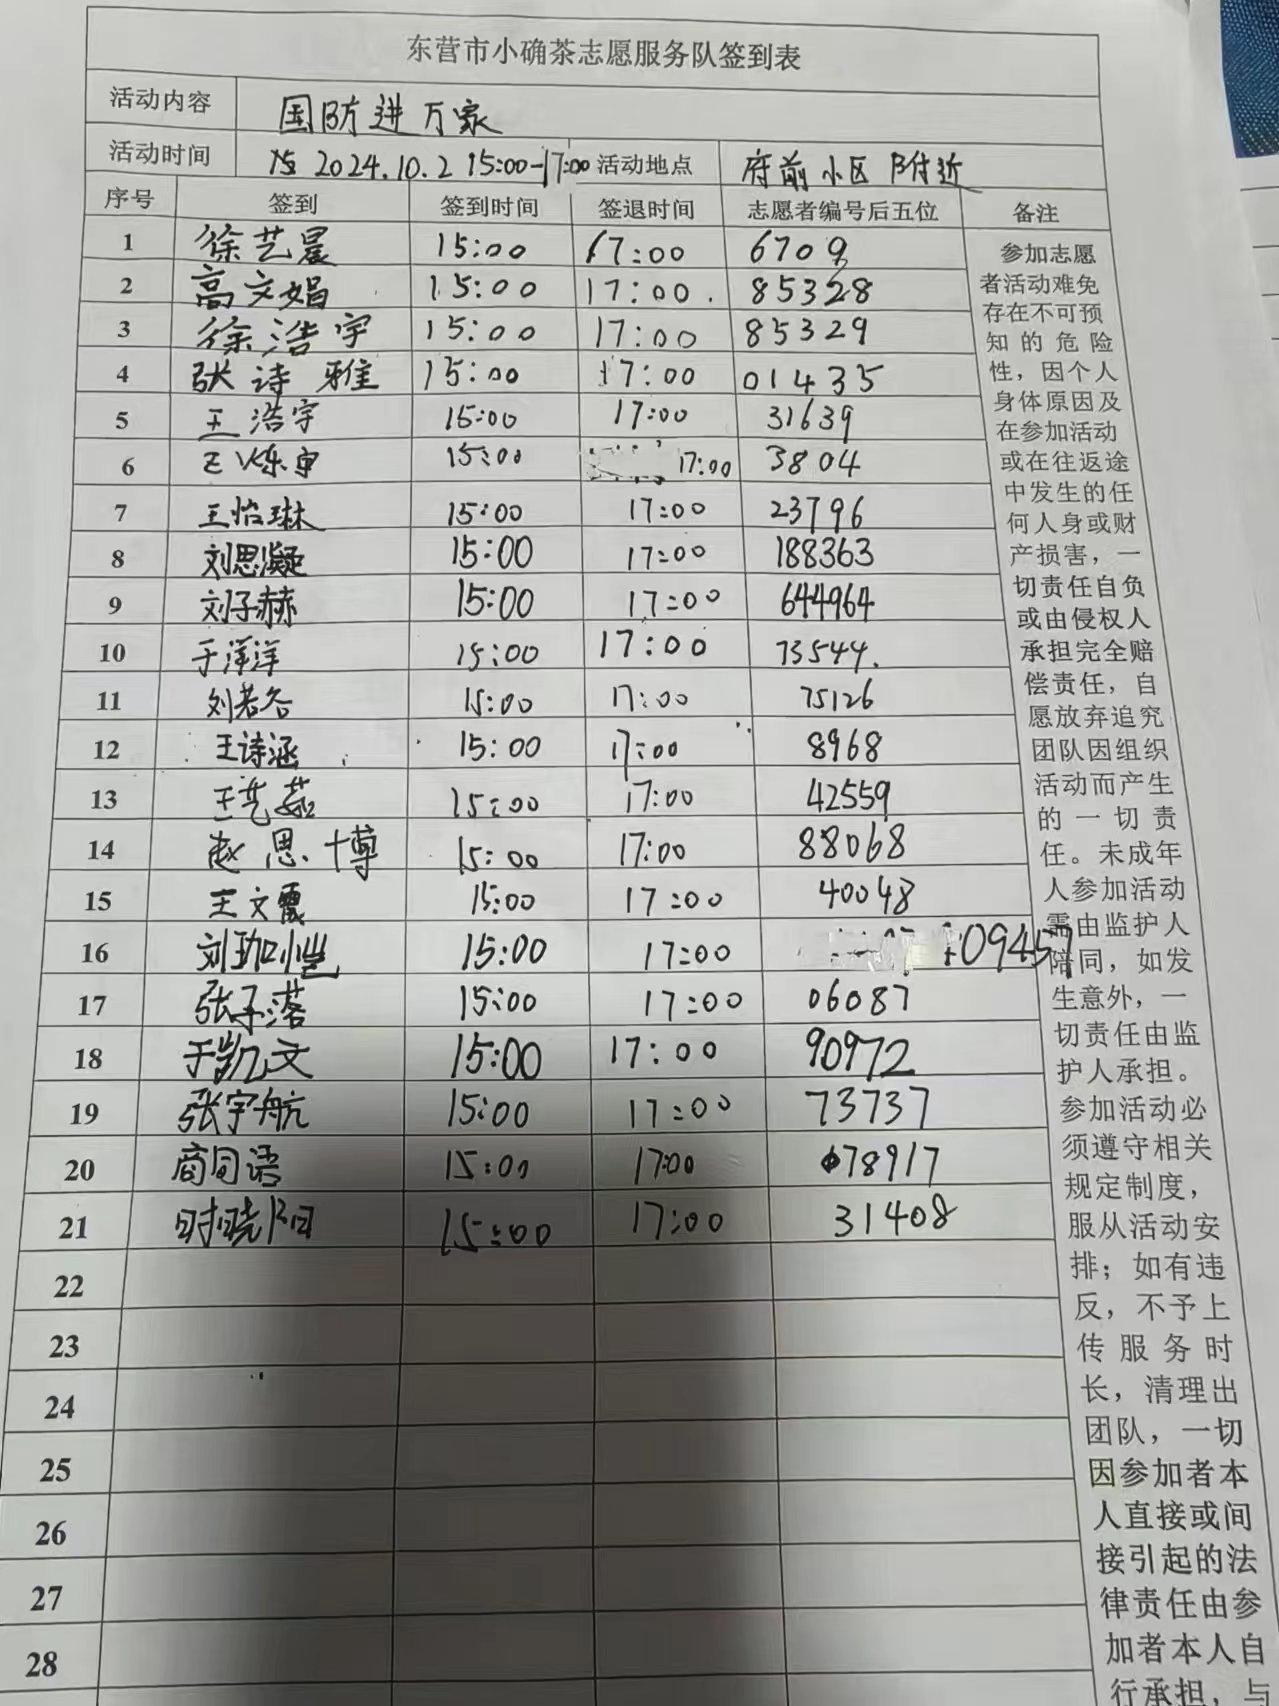 东营市小确茶志愿服务队签到表
活动内容 国防进万家
活动时间 2024.10.2 15:00-17:00 活动地点 府前小区附近
序号 签到 签到时间 签退时间 志愿者编号后五位 备注
1 徐艺晨 15:00 17:00 6709
2 高文娟 15:00 17:00 85328
3 徐浩宇 15:00 17:00 85329
4 张诗雅 15:00 17:00 01435
5 王浩宇 15:00 17:00 31639
6 15:00 17:00 3804
7 王怡琳 15:00 17:00 23796
8 刘思凝 15:00 17:00 188363
9 刘子赫 15:00 17:00 644964
10 于洋洋 15:00 17:00 73544.
11 刘若谷 15:00 17:00 75126
12 王诗涵 15:00 17:00 8968
13 王艺茹 15:00 17:00 42559
14 赵思博 15:00 17:00 88068
15 王文震 15:00 17:00 40048
16 15:00 17:00 09457
17 张子落 15:00 17:00 06087
18 于凯文 15:00 17:00 90972
19 张宇航 15:00 17:00 73737
20 商 语 15:00 17:00 78917
21 时晓阳 15:00 17:00 31408
22
23
24
25
26
27
28
参加志愿
者活动难免
存在不可预
知的危险
性，因个人
身体原因及
在参加活动
或在往返途
中发生的任
何人身或财
产损害，一
切责任自负
或由侵权人
承担完全赔
偿责任，自
愿放弃追究
团队因组织
活动而产生
的一切责
任。未成年
人参加活动
需由监护人
陪同，如发
生意外，一
切责任由监
护人承担。
参加活动必
须遵守相关
规定制度，
服从活动安
排；如有违
反，不予上
传服务时
长，清理出
团队，一切
因参加者本
人直接或间
接引起的法
律责任由参
加者本人自
行承担，与